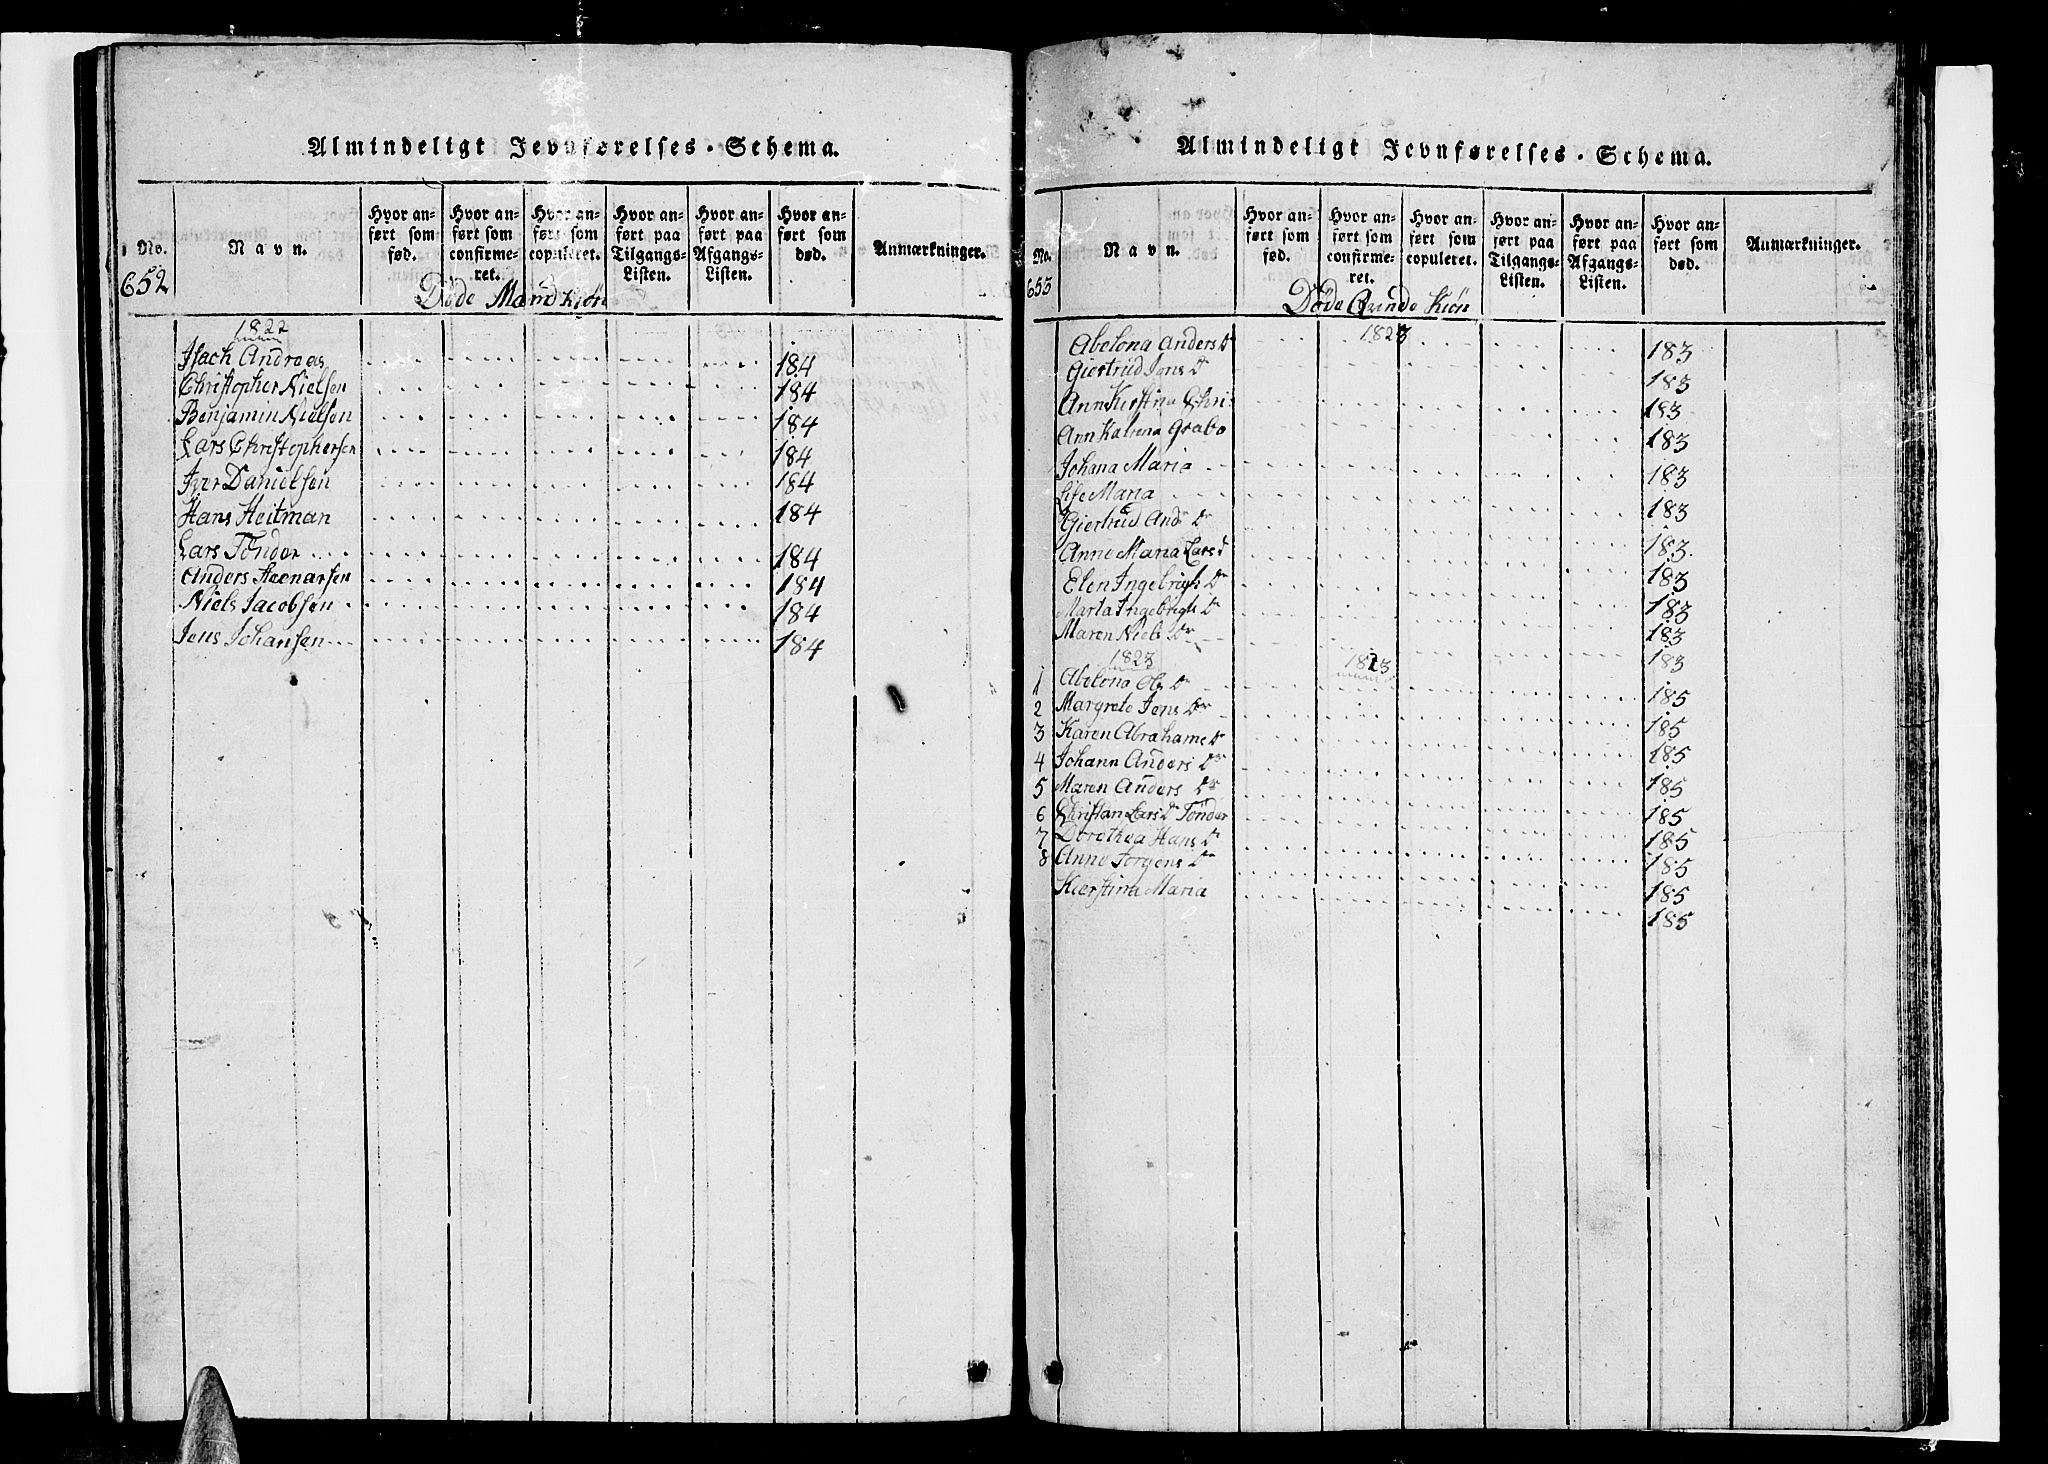 Almindeligt Jevnførelses-Schema.
No. Navn. Hvor anført som fød. Hvor anført som confirmeret. Hvor anført som copuleret. Hvor anført paa Tilgangs-Listen. Hvor anført paa Afgangs-Listen. Hvor anført som død. Anmærkninger.
652 Døde Mand Kiøn
1822
Isach Andreas 184
Christopher Nielsen 184
Benjamin Nielsen 184
Lars Christophersen 184
Iver Danielsen 184
Hans Heitman 184
Lars Tønder 184
Anders 184
Niels Jacobsen 184
Jens Johansen 184
Almindeligt Jevnførelses-Schema.
No. Navn. Hvor anført som fød. Hvor anført som confirmeret. Hvor anført som copuleret. Hvor anført paa Tilgangs-Listen. Hvor anført paa Afgangs-Listen. Hvor anført som død. Anmærkninger.
653 Døde Qvinde Kiøn
Abelona Anders Dr 1823 183
Giertrud Jens Dr 183
Ann Kirstina Chris 183
Ann Katrena Grabo 183
Johana Maria 183
Lise Maria 183
Giertrud And Dr 183
Anne Maria Lars d 183
Elen Ingebrigt Dr 183
Marta Ingebrigt Dr 183
Maren Niels Dr 183
1823 1823
1 Abelona Ols Dr 185
2 Margrete Jens Dr 185
3 Karen Abrahams Dr 185
4 Johann Anders Dr 185
5 Maren Anders Dr 185
6 Christan Lars Dr Tønder 185
7 Dorethea Hans Dr 185
8 Anne Jørgens Dr 185
Kierstina Maria 185